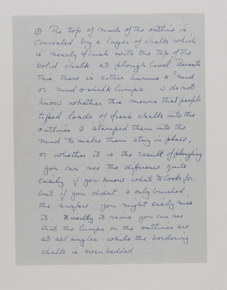 ① The top of much of the outline is
concealed by a layer of chalk which
is nearly flush with the top of the
solid chalk at plough level. Beneath
this there is either humus & mud
or mud & chalk lumps. I do not
know whether this means that people
tipped loads of fresh chalk into the
outlines & stamped them into the
mud to make them stay in place,
or whether it is the result of ploughing
you can see the difference quite
easily if you know what to look for,
but if you didn't & only brushed
the surface, you might easily miss
it. Directly it rains you can see
that the lumps on the outlines are
at all angles while the bordering
chalk is even bedded